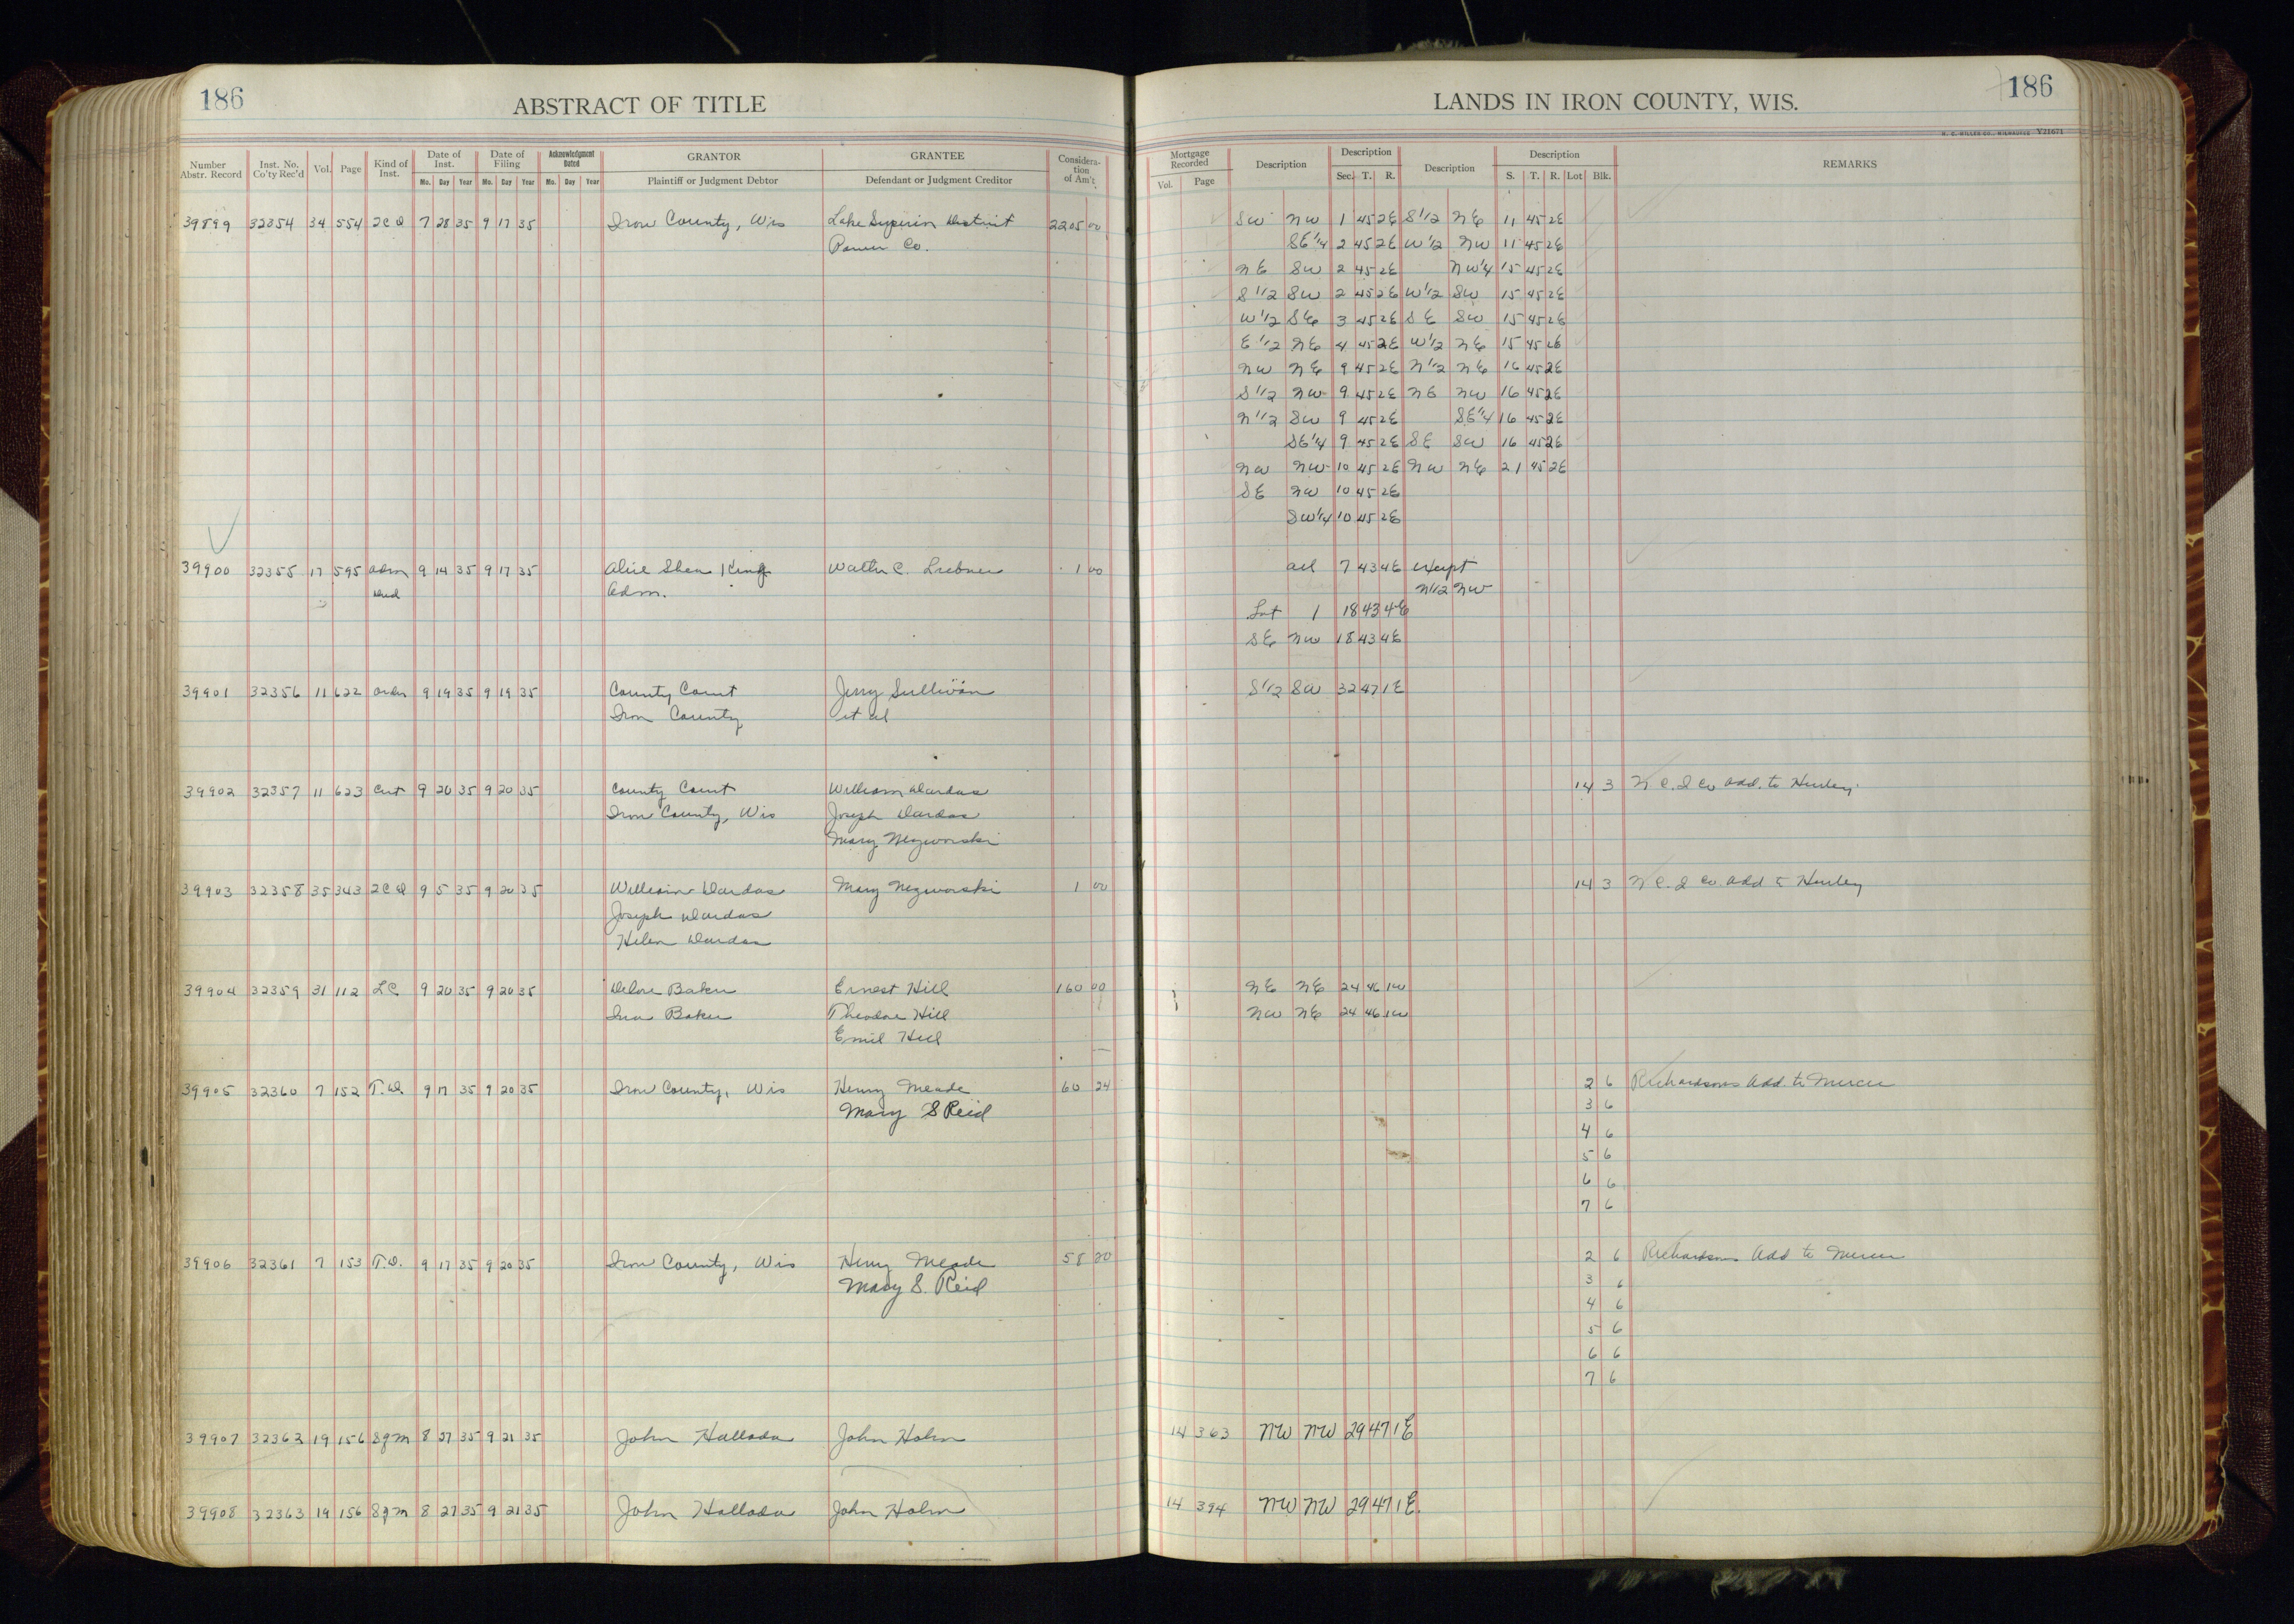 186
ABSTRACT OF TITLE
LANDS IN IRON COUNTY, WIS.
186
H. C. MILLER CO., MILWAUKEE Y21671
Number Abstr. Record Inst. No. Co'ty Rec'd Vol. Page Kind of Inst. Date of Inst. Mo. Day Year Date of Filing Mo. Day Year Acknowledgment Dated Mo. Day Year GRANTOR Plaintiff or Judgment Debtor GRANTEE Defendant or Judgment Creditor Consideration of Am't
Mortgage Recorded Vol. Page Description Description Sec. T. R. Description Description S. T. R. Lot Blk. REMARKS
39899 32354 34 554 2CD 7 28 35 9 17 35 Iron County, Wis Lake Superior District 2205 00 SW NW 1 45 2E S1/2 NE 11 45 2E
Power Co. SE1/4 2 45 2E W1/2 NW 11 45 2E
NE SW 2 45 2E NW1/4 15 45 2E
S1/2 SW 2 45 2E W1/2 SW 15 45 2E
W1/2 SE 3 45 2E SE SW 15 45 2E
E1/2 NE 4 45 2E W1/2 NE 15 45 2E
NW NE 9 45 2E N1/2 NE 16 45 2E
S1/2 NW 9 45 2E NE NW 16 45 2E
N1/2 SW 9 45 2E SE1/4 16 45 2E
SE1/4 9 45 2E SE SW 16 45 2E
NW NW 10 45 2E NW NE 21 45 2E
SE NW 10 45 2E
SW1/4 10 45 2E
39900 32355 17 595 Adm 9 14 35 9 17 35 Alice Shea King Walter C. 1 00 all 7 43 4E except
Deed Adm. N1/2 NW
Lot 1 18 43 4E
SE NW 18 43 4E
39901 32356 11 622 Order 9 19 35 9 19 35 County Court Jerry Sullivan S1/2 SW 32 47 1E
Iron County et al
39902 32357 11 623 Cert 9 20 35 9 20 35 County Court William Dardas 14 3 N C. I Co Add. to Hurley
Iron County, Wis Joseph Dardas
Mary Nezworski
39903 32358 35 343 2CD 9 5 35 9 20 35 William Dardas Mary Nezworski 1 00 14 3 N C. I Co. Add to Hurley
Joseph Dardas
Helen Dardas
39904 32359 31 112 LC 9 20 35 9 20 35 Delore Baker Ernest Hill 160 00 NE NE 24 46 1W
Ina Baker Theodore Hill NW NE 24 46 1W
Emil Hill
39905 32360 7 152 T.D. 9 17 35 9 20 35 Iron County, Wis Henry Meade 60 24 2 6 Richardsons Add. to Mercer
Mary S Reid 3 6
4 6
5 6
6 6
7 6
39906 32361 7 153 T.D. 9 17 35 9 20 35 Iron County, Wis Henry Meade 58 20 2 6 Richardsons Add to Mercer
Mary S. Reid 3 6
4 6
5 6
6 6
7 6
39907 32362 19 156 Sgm 8 27 35 9 21 35 John Hallada John Holm 14 363 NW NW 29 47 1E
39908 32363 19 156 Sgm 8 27 35 9 21 35 John Hallada John Holm 14 394 NW NW 29 47 1E.